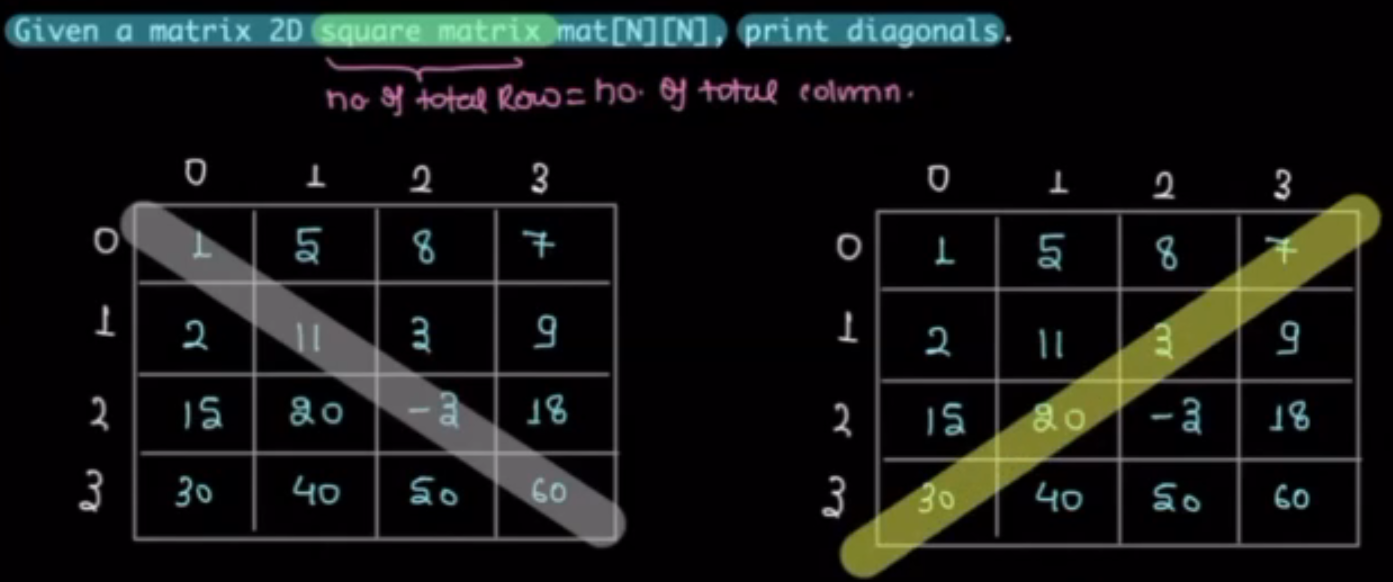 Given a matrix 2D square matrix mat[N][N], print diagonals.
no of total Row = no. of total column.
0 1 2 3
0 1 5 8 7
1 2 11 3 9
2 15 20 -3 18
3 30 40 50 60
0 1 2 3
0 1 5 8 7
1 2 11 3 9
2 15 20 -3 18
3 30 40 50 60